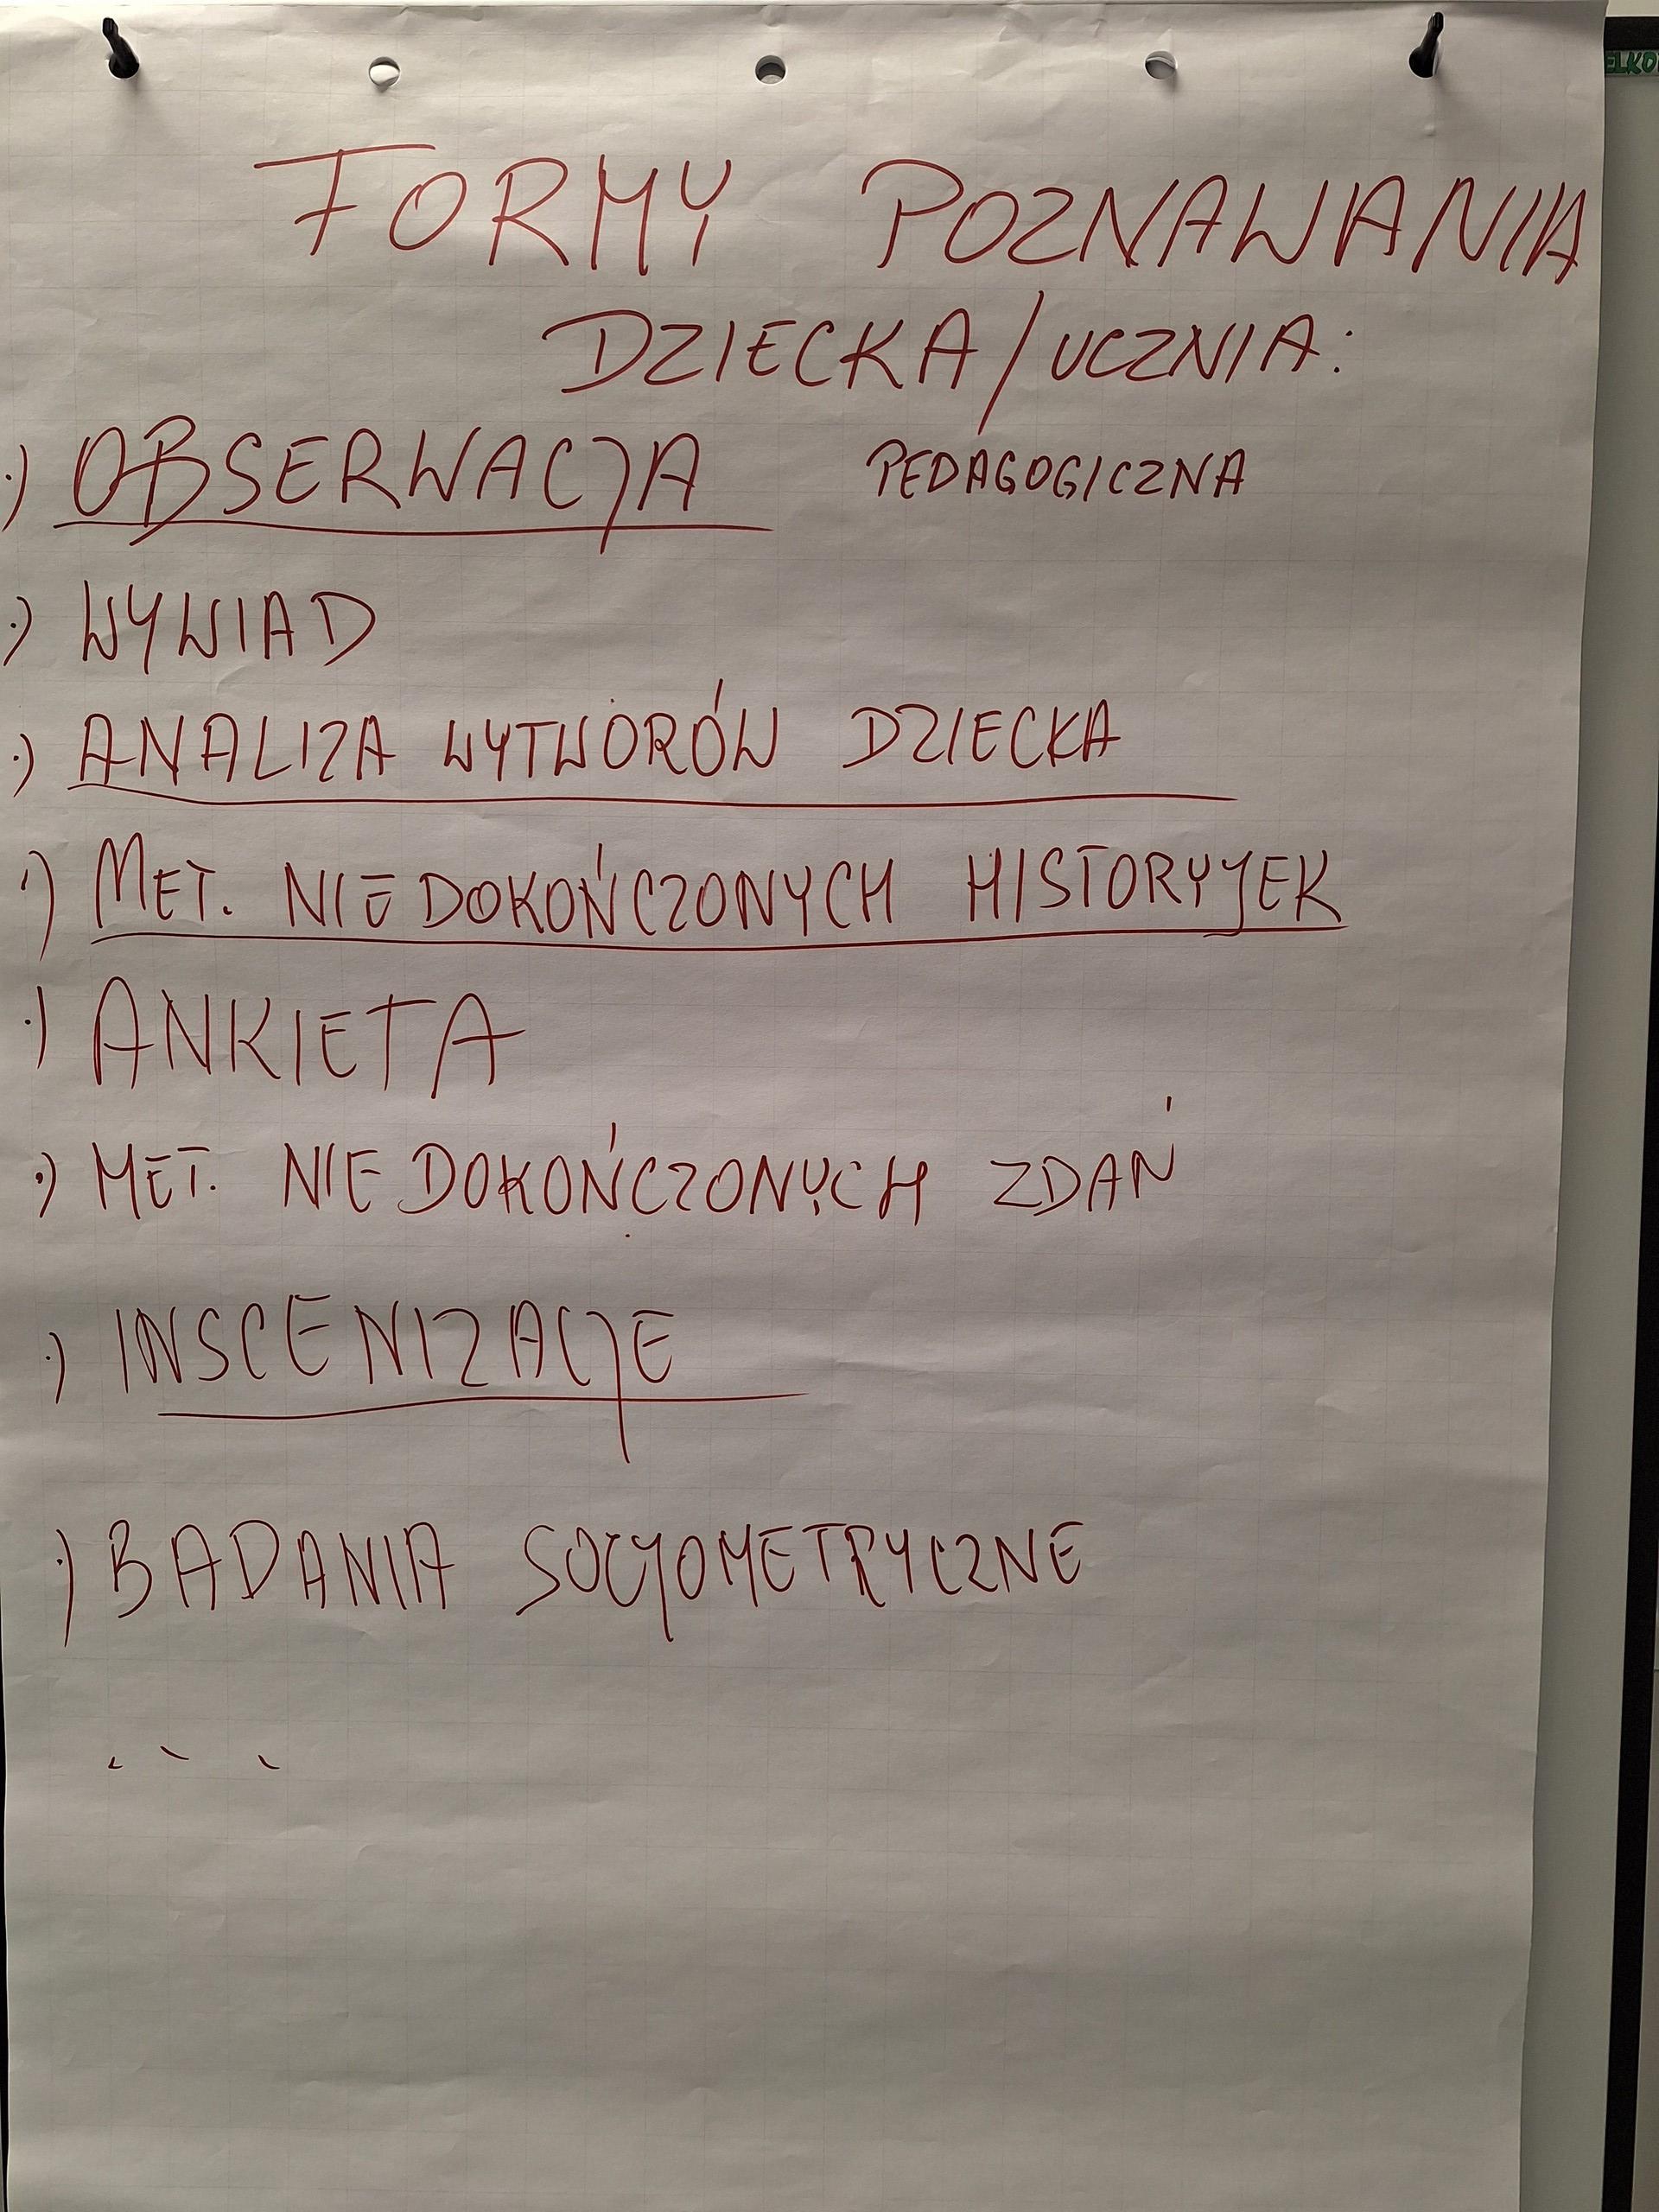 FORMY POZNAWANIA
DZIECKA/UCZNIA:
·) OBSERWACJA PEDAGOGICZNA
·) WYWIAD
·) ANALIZA WYTWORÓW DZIECKA
·) MET. NIEDOKOŃCZONYCH HISTORYJEK
·) ANKIETA
·) MET. NIEDOKOŃCZONYCH ZDAŃ
·) INSCENIZACJE
·) BADANIA SOCJOMETRYCZNE
...